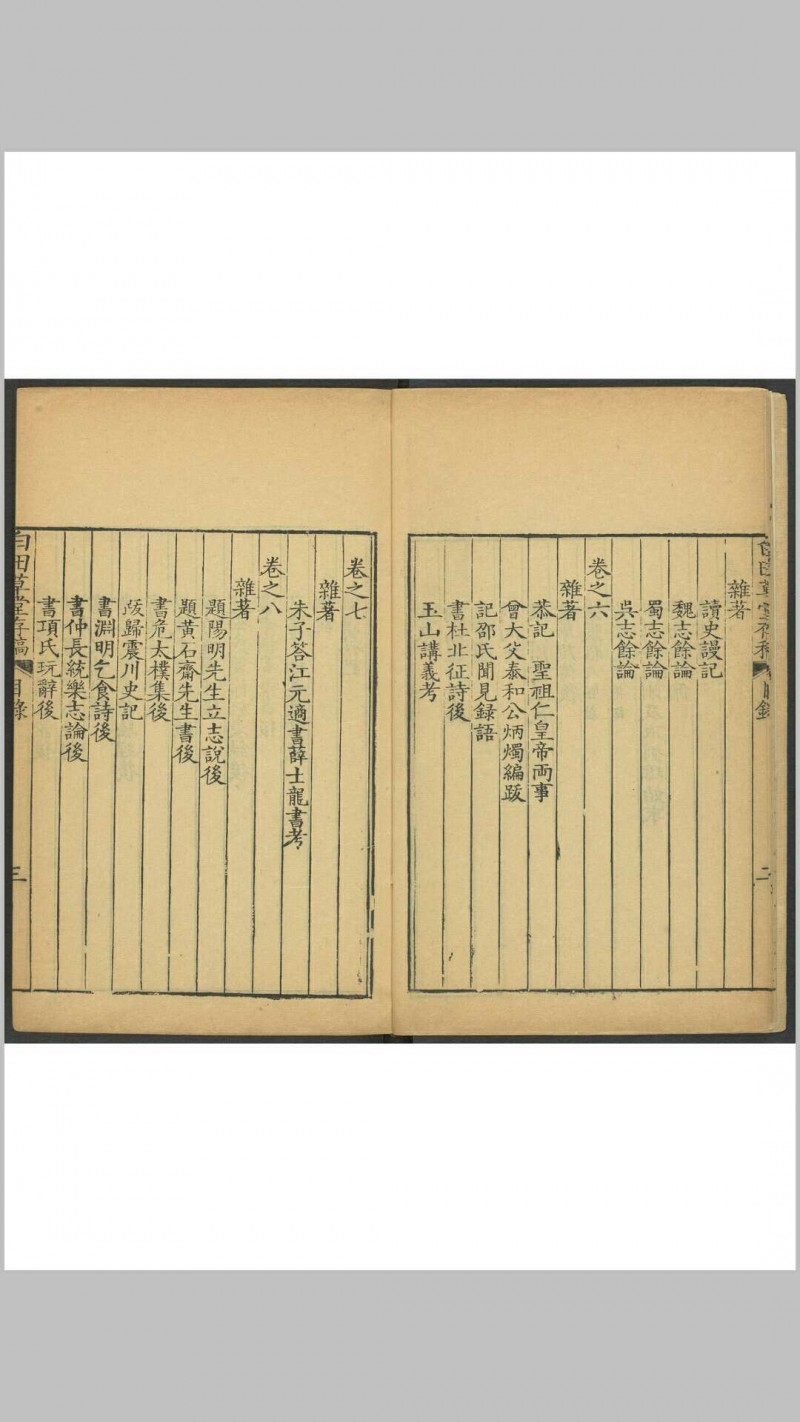 白田草堂存稿 目錄 二
雜著
讀史謾記
魏志餘論
蜀志餘論
吳志餘論
卷之六
雜著
恭記 聖祖仁皇帝兩事
曾大父泰和公炳燭編跋
記邵氏聞見録語
書杜北征詩後
玉山講義考
卷之七
雜著
朱子答江元適書薛士龍書考
卷之八
雜著
題陽明先生立志說後
題黃石齋先生書後
書危太樸集後
跋歸震川史記
書淵明乞食詩後
書仲長統樂志論後
書項氏玩辭後
白田草堂存稿 目錄 三